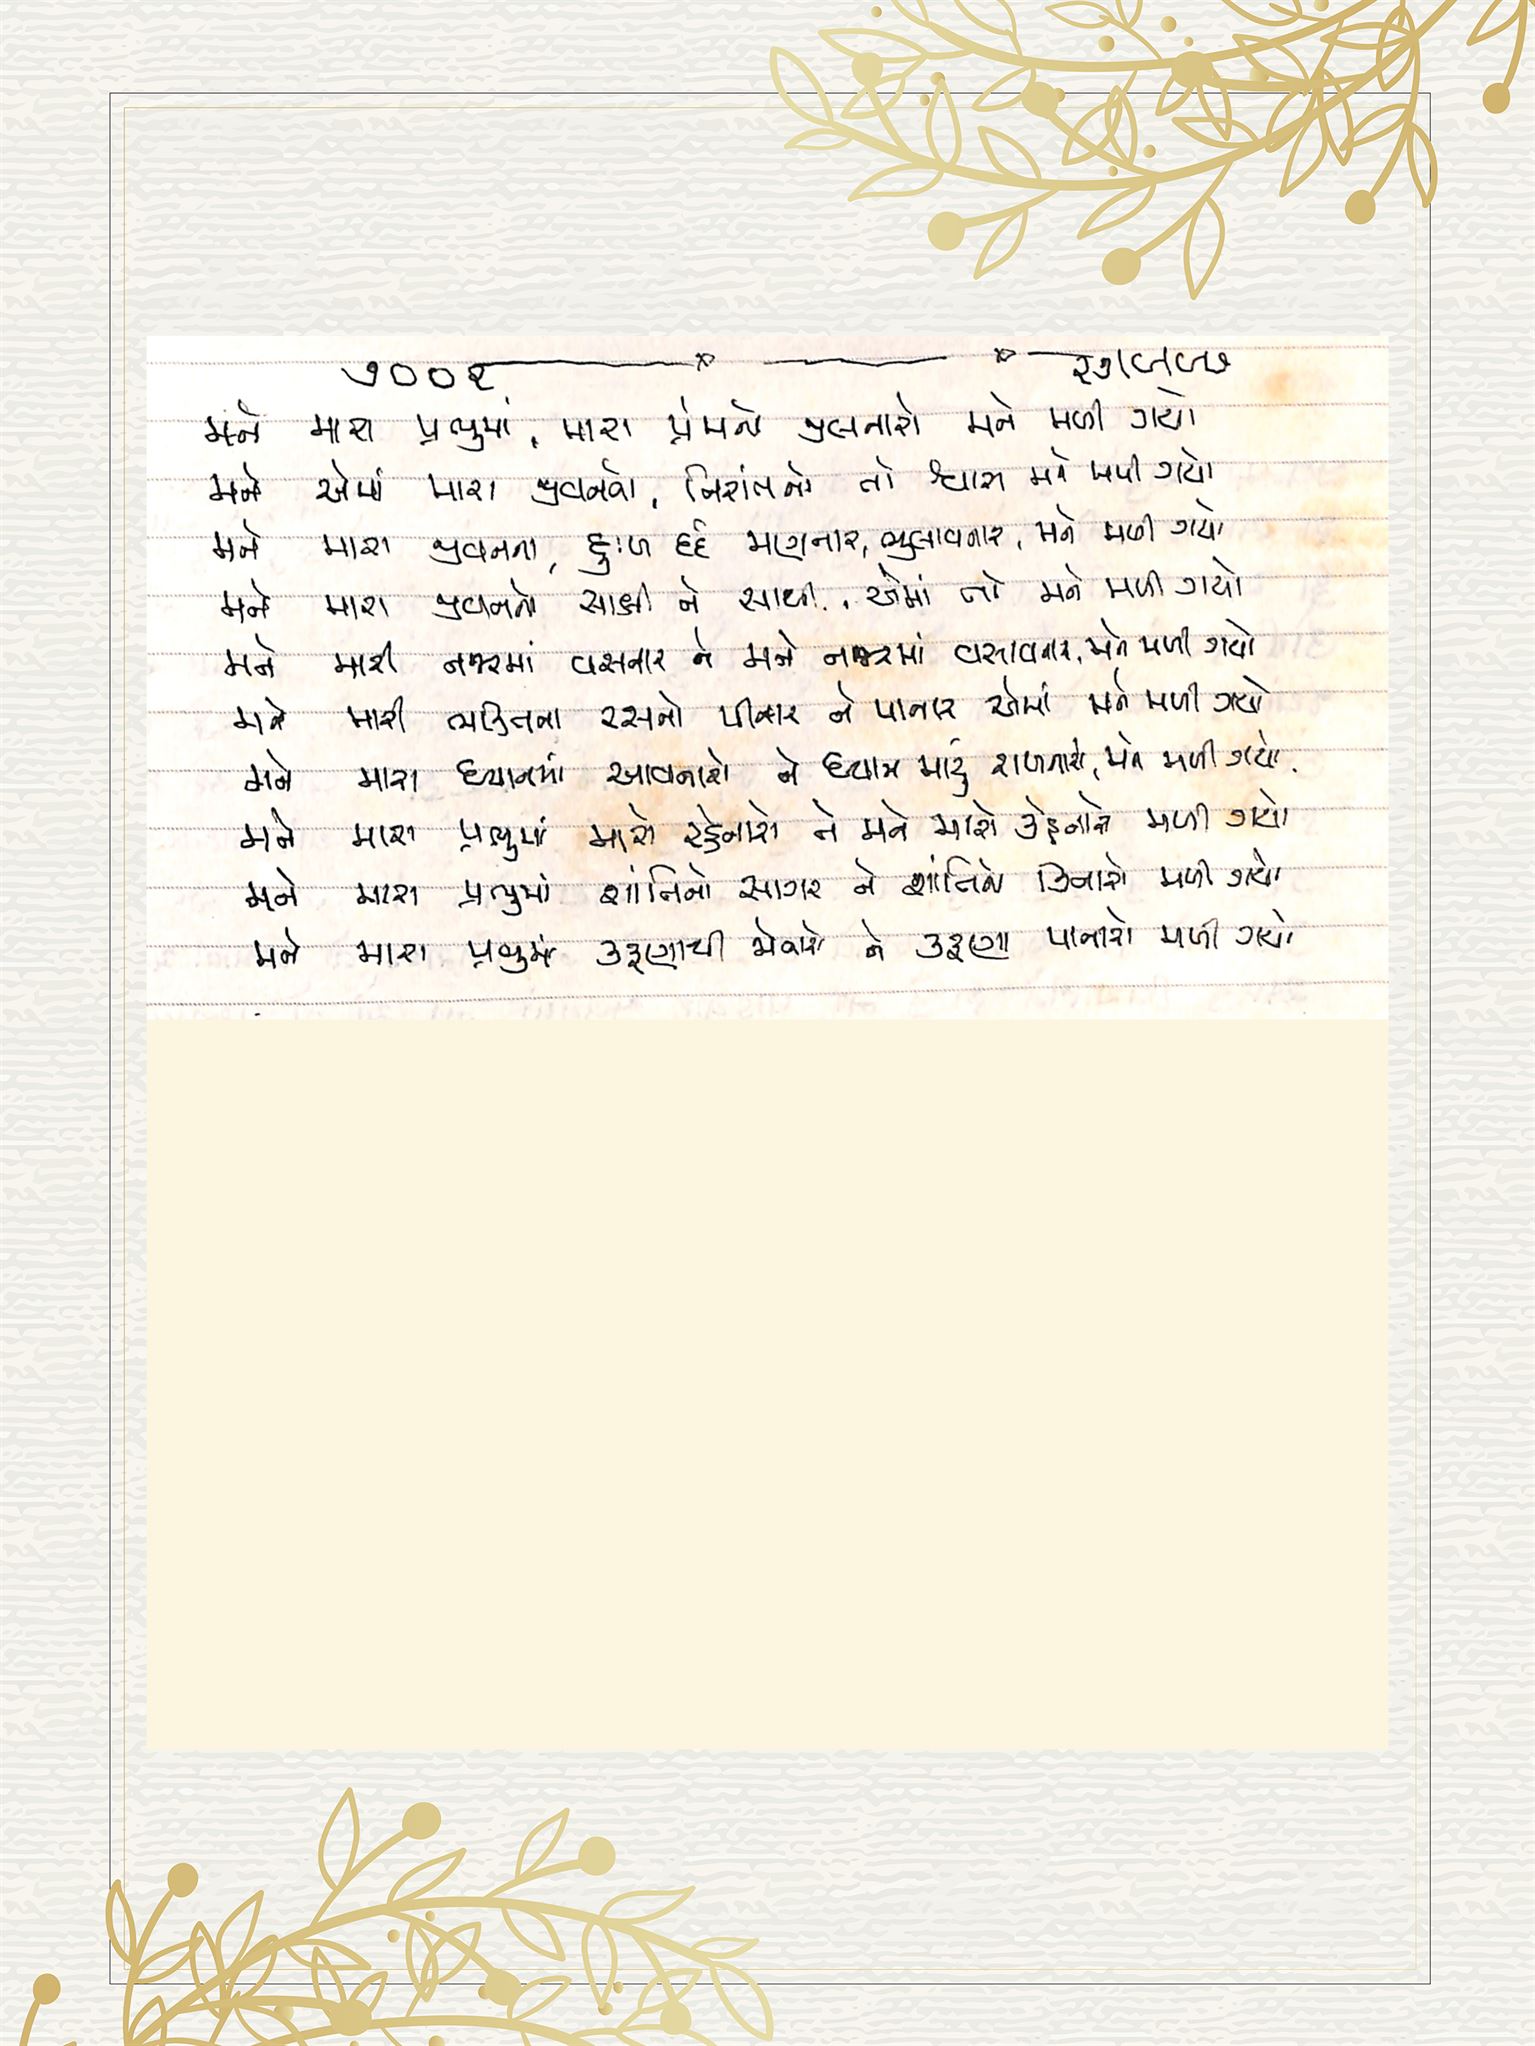 ૭૦૦૨
મને મારા પ્રભુમાં, મારા પ્રેમનો ઝીલનારો મને મળી ગયો
મને એમાં મારા જીવનનો, નિરાંતનો તો શ્વાસ મને મળી ગયો
મને મારા જીવનના, દુઃખ દર્દ માણનાર, ભુલાવનાર, મને મળી ગયો
મને મારા જીવનનો સાક્ષી ને સાથી.. એમાં તો મને મળી ગયો
મને મારી નજરમાં વસનાર ને મને નજરમાં વસાવનાર, મને મળી ગયો
મને મારી ભક્તિના રસનો પીનાર ને પાનાર એમાં મને મળી ગયો
મને મારા ધ્યાનમાં આવનારો ને ધ્યાન મારું રાખનારો, મને મળી ગયો.
મને મારા પ્રભુમાં મારો રહેનારો ને મને મારો કહેનારો મળી ગયો
મને મારા પ્રભુમાં શાંતિનો સાગર ને શાંતિનો કિનારો મળી ગયો
મને મારા પ્રભુમાં કરૂણાથી જોનારો ને કરૂણા પાનારો મળી ગયો